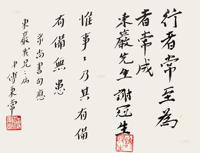 行者常至為
者常成
東巖先生 謝冠生
惟事事乃其有備
有備無患
尚書句應
東巖兄之
傅秉常